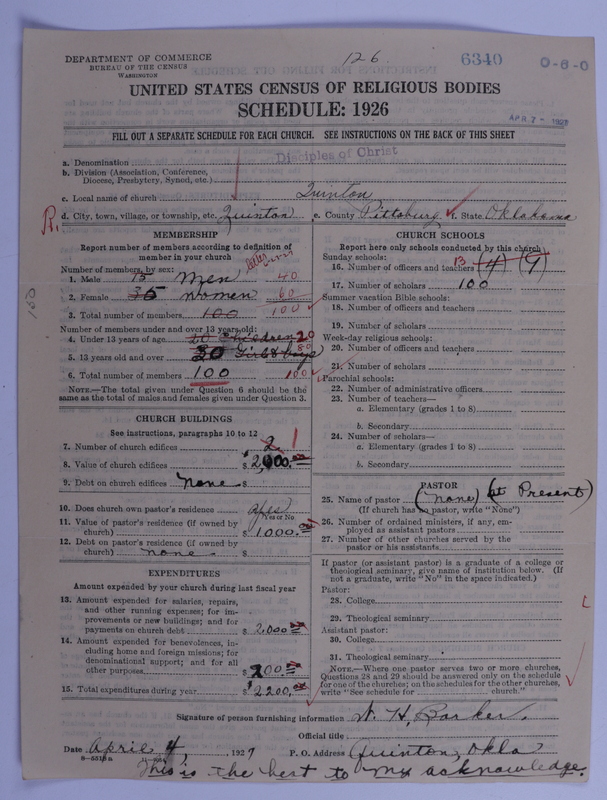 DEPARTMENT OF COMMERCE
BUREAU OF THE CENSUS
WASHINGTON
126
6340
0-6-0
UNITED STATES CENSUS OF RELIGIOUS BODIES
SCHEDULE: 1926
APR 7 - 1927
FILL OUT A SEPARATE SCHEDULE FOR EACH CHURCH. SEE INSTRUCTIONS ON THE BACK OF THIS SHEET
Disciples of Christ
a. Denomination
b. Division (Association, Conference,
Diocese, Presbytery, Synod, etc.)
c. Local name of church Quinton
R. d. City, town, village, or township, etc. Quinton e. County Pittsburg f. State Oklahama
MEMBERSHIP
Report number of members according to definition of
member in your church
Number of members, by sex:
1. Male 15 Men 40
2. Female 35 women 60
3. Total number of members 100 100
Number of members under and over 13 years old:
4. Under 13 years of age 20 Children 20
5. 13 years old and over 30 Girls & boys 80
6. Total number of members 100 100
NOTE.—The total given under Question 6 should be the
same as the total of males and females given under Question 3.
CHURCH BUILDINGS
See instructions, paragraphs 10 to 12
7. Number of church edifices 2 1
8. Value of church edifices $ 2,000.00
9. Debt on church edifices none $
10. Does church own pastor's residence yes
Yes or No
11. Value of pastor's residence (if owned by
church) $ 1000.00
12. Debt on pastor's residence (if owned by
church) none $
EXPENDITURES
Amount expended by your church during last fiscal year
13. Amount expended for salaries, repairs,
and other running expenses; for im-
provements or new buildings; and for
payments on church debt $ 2,000.00
14. Amount expended for benevolences, in-
cluding home and foreign missions; for
denominational support; and for all
other purposes $ 200.00
15. Total expenditures during year $ 2200.00
CHURCH SCHOOLS
Report here only schools conducted by this church
Sunday schools:
16. Number of officers and teachers 13 (4) (9)
17. Number of scholars 100
Summer vacation Bible schools:
18. Number of officers and teachers
19. Number of scholars
Week-day religious schools:
20. Number of officers and teachers
21. Number of scholars
Parochial schools:
22. Number of administrative officers
23. Number of teachers—
a. Elementary (grades 1 to 8)
b. Secondary
24. Number of scholars—
a. Elementary (grades 1 to 8)
b. Secondary
PASTOR
25. Name of pastor (none) (at Present)
(If church has no pastor, write "None")
26. Number of ordained ministers, if any, em-
ployed as assistant pastors
27. Number of other churches served by the
pastor or his assistants
If pastor (or assistant pastor) is a graduate of a college or
theological seminary, give name of institution below. (If
not a graduate, write "No" in the space indicated.)
Pastor:
28. College
29. Theological seminary
Assistant pastor:
30. College
31. Theological seminary
NOTE.—Where one pastor serves two or more churches,
Questions 28 and 29 should be answered only on the schedule
for one of the churches; on the schedules for the other churches,
write "See schedule for church."
Signature of person furnishing information W. H. Barker.
Official title
Date April 4, 1927 P. O. Address Quinton, Okla
8-5518a
This is the best to my acknowledge.